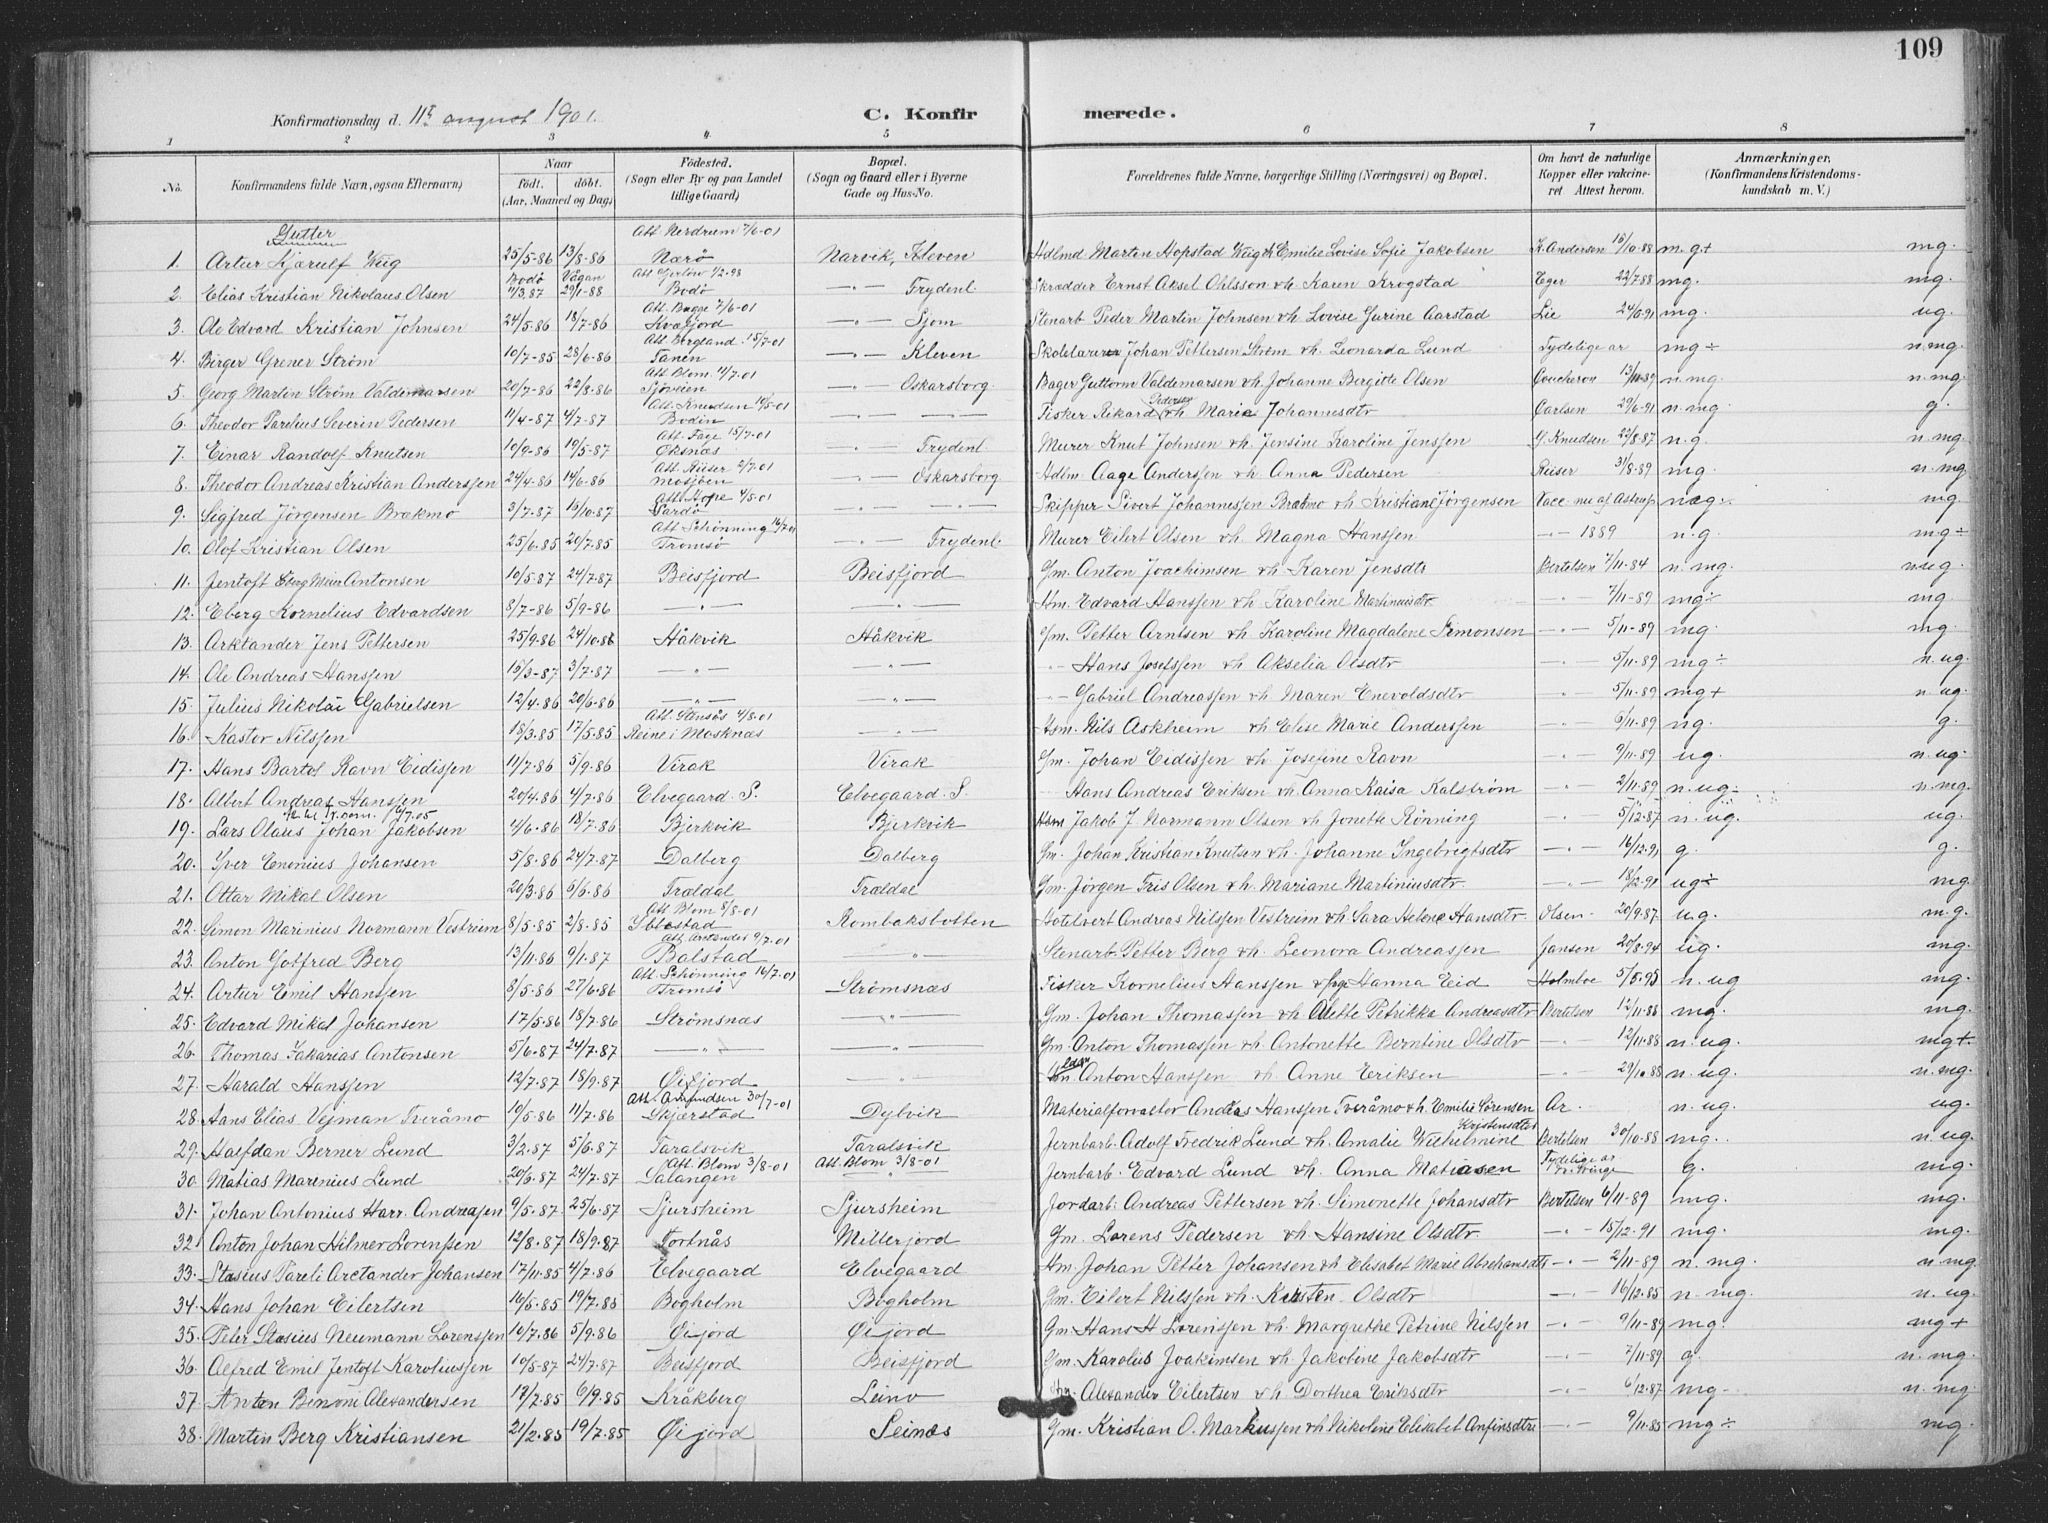 109
Konfirmationsdag d. 11te august 1901. C. Konfirmerede.
1 2 3 4 5 6 7 8
No. Konfirmandens fulde Navn, ogsaa Efternavn) Naar födt. döbt. (Aar, Maaned og Dag) Födested. (Sogn eller By og paa Landet tillige Gaard) Bopæl. (Sogn og Gaard eller i Byerne Gade og Hus-No. Forældrenes fulde Navne, borgerlige Stilling (Næringsvei) og Bopæl. Om havt de naturlige Kopper eller vakcineret Attest herom. Anmærkninger. (Konfirmandens Kristendomskundskab m. V.)
Gutter Att. Nerdrum 7/6-01
1. Artur Kjerulf Wiig 25/5-86 13/8-86 Nærö Narvik, Kleven Hdlmd Martin Hopstad Wiig vh Emilie Lovise Sofie Jakobsen K. Andersen 10/10-88 m.g+ mg.
Bodö Vågan
2. Elias Kristian Nikolaus Olsen 7/3.87 29/1-88 Bodö -"- Frydenl. Skrædder Ernst Aksel Ohlsson vh. Karen Krogstad Eger 22/7.88 mg. mg.
Att. Bugge 7/6-01
3. Ole Edvard Kristian Johnsen 24/5-86 18/7-86 Kvæfjord -"- Sjom Stenarb. Peder Martin Johnsen vh. Lovise Gurine Aarstad Lie 24/6.91 mg. ug.
Att. Bergland. 15/7-01
4. Birger Grener Ström 10/7-85 28/6-86 Tanen -"- Kleven Skolelærer Johan Pettersen Ström vh. Leonarda Lund Tydelige ar mg÷ n.mg.
Att. Blom. 11/7.01
5. Georg Martin Ström Valdemarsen 20/7-86 22/8-86 Sjöveien -"- Oskarsborg. Bager Guttorm Valdemarsen vh. Johanne Bergitte Olsen Coucheron 13/11-89 n.mg. n.mg.
Att. Knudsen 10/5-01
6. Theodor Parelius Severin Pedersen 11/4-87 4/7-87 Bodin -"- -"- Fisker Rikard Pedersen vh. Maria Johannesdtr Carlsen 29/6-91 n.mg. g.
Att. Faye 15/7-01
7. Einar Randolf Knutsen 10/9-86 19/5-87 Öksnæs -"- Frydenl. Murer Knut Johnsen vh. Jensine Karoline Jenssen Knudsen 23/8-87 n.g. n.mg.
Att. Reiser 2/7.01
8. Theodor Andreas Kristian Anderssen 24/4-86 14/6-86 Mosjöen -"- Oskarsborg Hdlm. Aage Anderssen vh. Anna Pedersen Reiser 31/8-89 mg. n.mg.
Att. Hope 4/8-01
9. Sigfred Jörgensen Brækmo 3/7-87 15/10-87 Vardö -"- -"- Skipper Sivert Johannessen Brækmo vh. Kristiane Jörgensen Vacc. nu af Astrup mg.
Att. Schönning 16/7-01
10. Olof Kristian Olsen 25/6-85 20/7.85 Tromsö -"- Frydenl. Murer Eilert Olsen vh. Magna Hanssen -"- 1889 n.g. mg÷
11. Jentoft Antonsen 10/5-87 24/7-87 Beisfjord Beisfjord Gm. Anton Joachimsen vh. Karen Jensdtr Bertelsen 7/11-84 n.mg.
12. Eberg Kornelius Edvardsen 8/7-86 5/9-86 -"- -"- Hm. Edvard Hanssen vh. Karoline Martinusdtr -"- 7/11-89 mg÷ mg.
13. Arktander Jens Pettersen 25/9.86 24/10.86 Håkvik Håkvik Gm. Petter Arntsen vh. Karoline Magdalene Simonsen -"- 5/11-89 mg. mg.
14. Ole Andreas Hanssen 15/3-87 3/7-87 -"- -"- -"- Hans Josefssen vh. Akselia Olsdtr -"- 5/11.89 mg÷ n.ug.
15. Julius Nikolai Gabrielsen 12/4.86 20/6.86 -"- -"- -"- Gabriel Andreassen vh. Maren Enevoldsdtr -"- 5/11.89 mg+ n.ug.
Att. Stensös 4/8-01
16. Kastor Nilssen 18/3.85 17/5.85 Reine i Mosknæs -"- Hsm. Nils Askheim vh. Elise Marie Anderssen -"- 6/11.89 ng. g.
17. Hans Bartol Ravn Eidissen 11/7-86 5/9-86 Virak Virak Gm. Johan Eidissen vh. Josefine Ravn -"- 9/11-89 ug. n.ug.
18. Albert Andreas Hanssen 20/4.86 4/7-86 Elvegaard. S. Elvegaard. S. -"- Hans Andreas Eriksen vh. Anna Kaisa Kalström -"- 2/11.89 n.ug÷ n.mg.
19. Lars Olaus Johan Jakobsen 4/6-86 18/7-86 Bjerkvik Bjerkvik Hsm Jakob J. Normann Olsen vh Jonette Rönning -"- 5/12.87 n.ug. ug.
20. Yver Enonius Johansen 5/8.86 24/7.87 Dalberg Dalberg Gm. Johan Kristian Knutsen vh. Johanne Ingebrigtsdtr -"- 16/12.91 g. g.
21. Ottar Mikal Olsen 20/3.86 6/6.86 Trældal Trældal Gm. Jörgen Fris Olsen vh. Mariane Martiniusdtr -"- 18/2-91 ug÷ mg.
Att Blom 8/8-01
22. Simon Marinius Normann Vestreim 8/5.85 2/8.85 Ibbestad Rombaksbotten Andreas Nilssen Vestreim vh. Sara Helene Hansdtr Olsen 20/9.87 u.g. m.g.
Att. Arctander 9/7.01
23. Anton Gotfred Berg 13/11.86 9/1.87 Balstad -"- Stenarb. Petter Berg vh. Leonora Andreassen Jansen 20/8.94 ug. mg.
Att. Schönning 16/7.01
24. Artur Emil Hanssen 8/5.86 27/6.86 Tromsö Strömsnæs Fisker Kornelius Hanssen Hanna Eid Holmboe 5/5.95 n.ug mg.
25. Edvard Mikal Johansen 17/5.86 18/7.86 Strömsnæs -"- Gm. Johan Thomassen vh Olette Petrikka Andreasdtr Bertelsen 12/11.86 mg. mg.
26. Thomas Sakarias Antonsen 5/6.87 24/7.87 -"- -"- Gm. Anton Thomassen vh. Antonette Berntine Olsdtr -"- 12/11.88 n.ug. mg+
27. Harald Hanssen 12/7.87 18/9.87 Öifjord -"- Anton Hanssen vh. Anne Eriksen -"- 29/10.88 n.ug. n.mg.
Att. Amundsen 30/7-01
28. Hans Elias Vejman Tveråmo 10/5.86 11/7.86 Skjærstad Dybvik Materialforvalter Andreas Hanssen Tveråmo vh. Emilie Sörensen Ar. n.ug. ug.
Kristensdtr
29. Halfdan Berner Lund 3/2.87 5/6-87 Taralsvik Taralsvik Jernbarb. Adolf Fredrik Lund vh. Amalie Wilhelmine Bertelsen 30/10.88 mg. n.ug.
Att. Blom 3/8-01 Att. Blom 3/8-01 Tydelige ar
30. Matias Marinius Lund 20/6.87 24/7.87 Salangen -"- Jernbarb. Edvard Lund vh. Anna Matiasen g. mg.
31. Johan Antonius Harr. Andreassen 9/5.87 25/6.87 Sjursheim Sjursheim Jordarb. Andreas Pettersen vh. Simonette Johansdtr Bertelsen 6/11-89 mg. mg.
32. Anton Johan Hilmer Lorenssen 12/8.87 18/9.87 Tortnås Millerjord Gm. Lorens Pedersen vh. Hansine Olsdtr. -"- 15/12.91 mg. mg.
33. Stasius Pareli Arctander Johansen 17/11.85 4/7.86 Elvegaard Elvegaard Hm. Johan Petter Johansen vh Elisabet Marie Abrahamsdtr -"- 2/11-89 n.mg. n.mg
34. Hans Johan Eilertsen 16/5.85 19/7.85 Bogholm Bogholm Gm. Eilert Nilssen vh. Kirsten Olsdtr -"- 16/12.85 n.mg. n.ug.
35. Peter Stasius Neumann Lorenssen 10/7.86 5/9.86 Öijord Öijord Gm Hans H Lorenssen vh. Margrethe Petrine Nilssen -"- 9/11-89 mg. mg+
36. Alfred Emil Jentoft Karoliussen 10/5.87 24/7.87 Beisfjord Beisfjord Gm. Karolius Joakimsen vh. Jakobine Jakobsdtr -"- 7/11.89 g. n.mg.
37. Anton Benoni Alexandersen 17/7.85 6/9.85 Kråkberg Leino Hm. Alexander Eilertsen vh. Dorthea Eriksdtr -"- 6/12.87 mg. n.mg.
38. Martin Berg Kristiansen 21/2.85 19/7.85 Öijord Seines Gm. Kristian O. Markussen vh Nikoline Elisabet Anfinsdtr -"- 9/11.85 mg÷ mg.